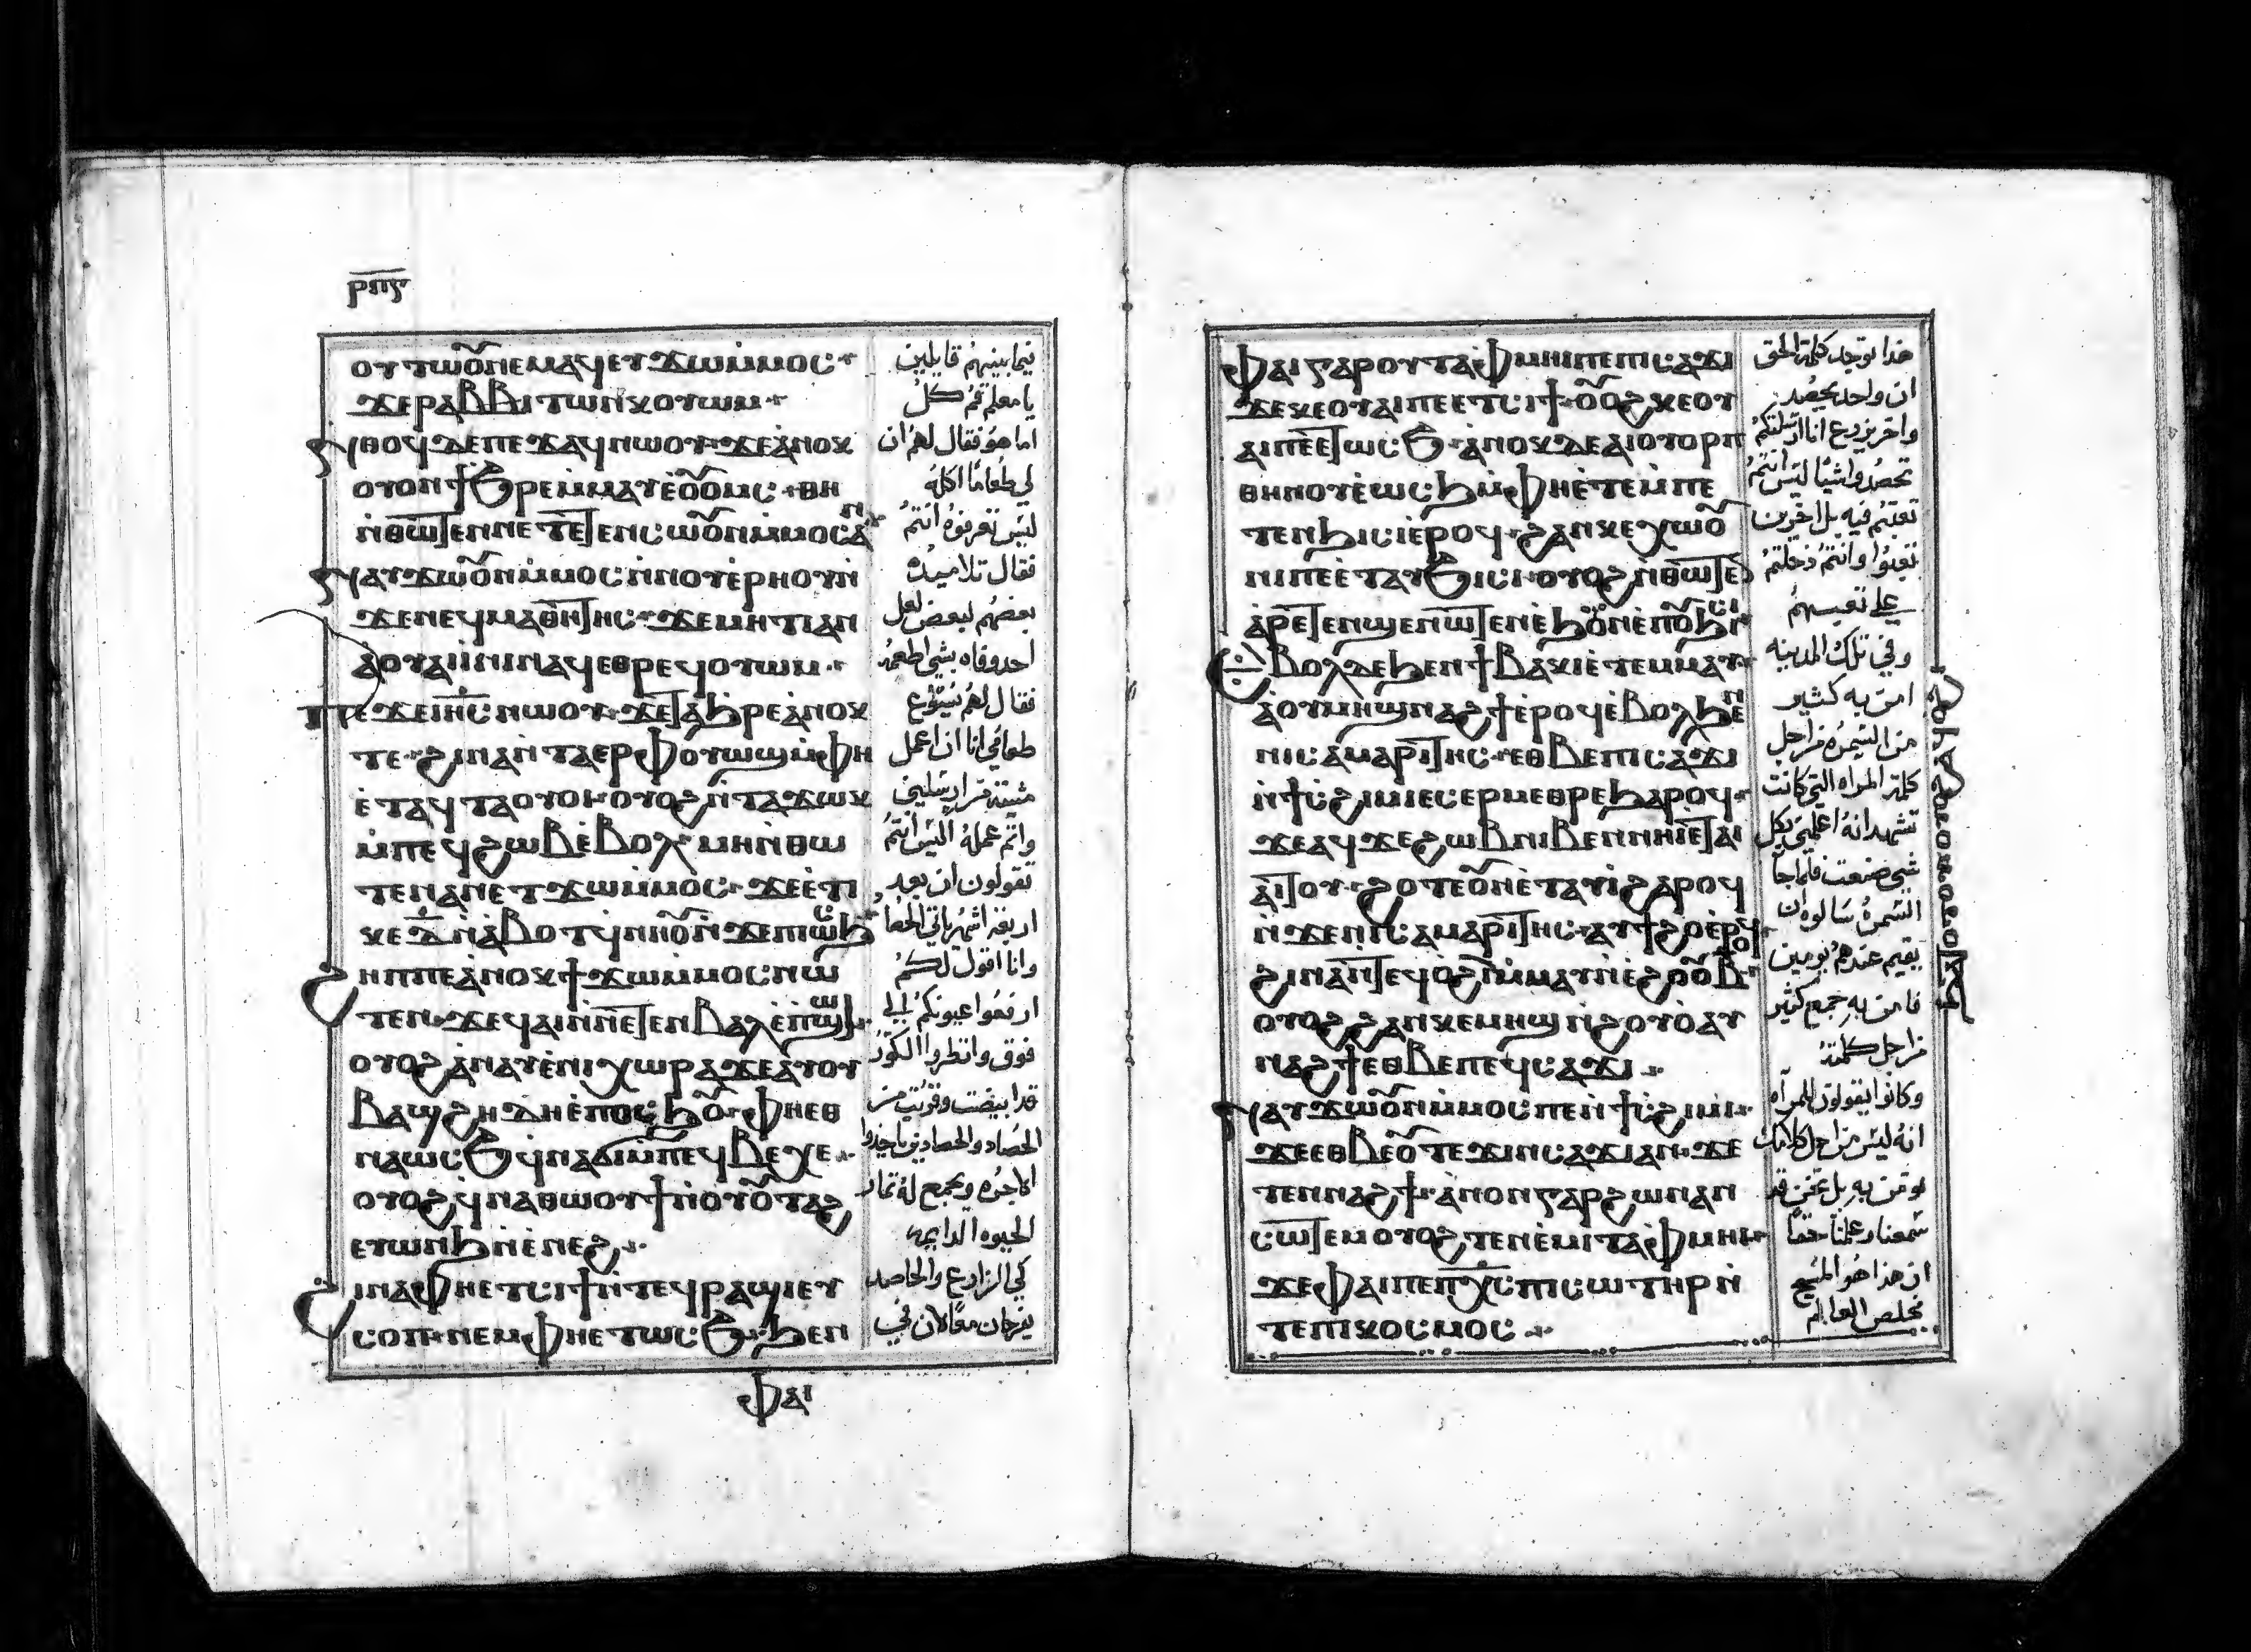 ⲣⲡⲋ
ⲟⲩⲧⲱⲟ̅ⲛⲉⲙⲁϥⲉⲩϫⲱⲙ̀ⲙⲟⲥ
ϫⲉⲣⲁⲃⲃⲓⲧⲱⲛⲕⲟⲩⲱⲙ
ⲛ̀ⲑⲟϥⲇⲉⲡⲉϫⲁϥⲛⲱⲟⲩϫⲉⲁ̀ⲛⲟⲕ
ⲟⲩⲟⲛϯϧⲣⲉⲙ̀ⲙⲁⲩⲉ̀ⲟ̅ⲟⲙⲥ
ⲛ̀ⲑⲱⲧⲉⲛⲛⲉⲧⲉⲧⲉⲛⲥⲱⲟ̅ⲛⲙ̀ⲙⲟⲥⲁ̀ⲛ
ⲛⲁⲩϫⲱⲟ̅ⲛⲙ̀ⲙⲟⲥⲛ̀ⲛⲟⲩⲉ̀ⲣⲏⲟⲩⲛ̀
ϫⲉⲛⲉϥⲙⲁⲑⲏⲧⲏⲥϫⲉⲙⲏⲧⲓⲁⲛ
ⲁ̀ⲟⲩⲁⲓⲓ̀ⲛⲓⲛⲁϥⲉⲑⲣⲉϥⲟⲩⲱⲙ
ⲡⲉϫⲉⲓ̅ⲏ̅ⲥ̅ⲛⲱⲟⲩϫⲉⲧⲁϧⲣⲉⲁ̀ⲛⲟⲕ
ⲧⲉϩⲓⲛⲁⲛ̀ⲧⲁⲉⲣⲫⲟⲩⲱϣⲙ̀ⲫⲏ
ⲉ̀ⲧⲁϥⲧⲁⲟⲩⲟⲓⲟⲩⲟϩⲛ̀ⲧⲁϫⲱⲕ
ⲙ̀ⲡⲉϥϩⲱⲃⲉ̀ⲃⲟⲗⲙⲏⲛ̀ⲑⲱ
ⲧⲉⲛⲁⲛⲉⲧϫⲱⲙ̀ⲙⲟⲥϫⲉⲉ̀ⲧⲓ
ⲕⲉⲇ̅ⲛ̀ⲁ̀ⲃⲟⲧϥⲛ̀ⲛⲟ̅ⲛ̀ϫⲉⲡⲓⲱⲥϧ
ϩⲏⲡⲡⲉⲁ̀ⲛⲟⲕϯϫⲱⲙ̀ⲙⲟⲥⲛⲱ
ⲧⲉⲛϫⲉϥⲁⲓⲛ̀ⲛⲉⲧⲉⲛⲃⲁⲗⲉ̀ⲡϣⲱⲓ
ⲟⲩⲟϩⲁ̀ⲛⲁⲩⲉ̀ⲛⲓⲭⲱⲣⲁϫⲉⲁⲩⲟⲩ
ⲃⲁϣϩⲏⲇⲏⲉ̀ⲡⲟⲥϧⲟ̅ⲫⲏⲉⲑ
ⲛⲁⲱⲥϧϥⲛⲁϭⲓⲙ̀ⲡⲉϥⲃⲉⲭⲉ
ⲟⲩⲟϩϥⲛⲁⲑⲱⲟⲩϯⲛ̀ⲟⲩⲟ̅ⲧⲁϩ
ⲉⲩⲱⲛϧⲛ̀ⲉ̀ⲛⲉϩ
ϩⲓⲛⲁⲫⲏⲉⲧⲥⲓϯⲛ̀ⲧⲉϥⲣⲁϣⲓⲉⲩ
ⲥⲟⲡⲛⲉⲙⲫⲏⲉⲧⲱⲥϧϧⲉⲛ
فيما بينهم قايلين
يا معلم قم كل
اما هو فقال لهم ان
لي طعاما اكله
ليس تعرفوه انتم
فقال تلاميذه
بعضهم لبعض لعل
احد وفاه بشي اطعمه
فقال لهم يسوع
طعامي انا ان اعمل
مشية من ارسلني
واتم عمله اليس انتم
تقولون ان بعد
اربعة اشهر ياتي الحصاد
وانا اقول لكم
ارفعوا عيونكم الي
فوق وانظروا الكور
قد ابيضت وقربت من
الحصاد والحصادين ياخذوا
الاجره ويجمع له ثمار
الحيوه الدايمه
كي الزارع والحاصد
يفرحان معا لان في
ⲫⲁⲓ
ⲫⲁⲓⲅⲁⲣⲟⲩⲧⲁⲫⲙⲏⲓⲡⲉⲡⲓⲥⲁϫⲓ
ϫⲉⲕⲉⲟⲩⲁⲓⲡⲉⲉⲧⲥⲓϯⲟ̅ⲟϩⲕⲉⲟⲩ
ⲁⲓⲡⲉⲉ̀ⲧⲱⲥϧⲁ̀ⲛⲟⲕⲇⲉⲁⲓⲟⲩⲟⲣⲡ
ⲑⲏⲛⲟⲩⲉ̀ⲱⲥϧⲙ̀ⲫⲏⲉ̀ⲧⲉⲙ̀ⲡⲉ
ⲧⲉⲛϧⲓⲥⲓⲉ̀ⲣⲟϥϩⲁⲛⲕⲉⲭⲱⲟ̅
ⲛⲓⲡⲉⲉ̀ⲧⲁⲩϧⲓⲥⲓⲟⲩⲟϩⲛ̀ⲑⲱⲧⲉ
ⲁ̀ⲣⲉⲧⲉⲛϣⲉⲛⲱⲧⲉⲛⲉ̀ϧⲟ̅ⲛⲉ̀ⲡⲟ̅ϧⲓⲥⲓ
ⲉ̀ⲃⲟⲗⲇⲉϧⲉⲛϯⲃⲁⲕⲓⲉ̀ⲧⲉⲙⲙⲁⲩ
ⲁ̀ⲟⲩⲙⲏϣⲛⲁϩϯⲉ̀ⲣⲟϥⲉ̀ⲃⲟⲗϧⲉⲛ
ⲛⲓⲥⲁⲙⲁⲣⲓⲧⲏⲥⲉⲑⲃⲉⲡⲓⲥⲁϫⲓ
ⲛ̀ϯⲥϩⲓⲙⲓⲉⲥⲉⲣⲙⲉⲑⲣⲉϧⲁⲣⲟϥ
ϫⲉⲁϥϫⲉϩⲱⲃⲛⲓⲃⲉⲛⲛⲏⲓⲉ̀ⲧⲁⲓ
ⲁⲓⲧⲟⲩϩⲟⲧⲉⲟ̅ⲛⲉ̀ⲧⲁⲩⲓ̀ϩⲁⲣⲟϥ
ⲛ̀ϫⲉⲛⲓⲥⲁⲙⲁⲣⲓⲧⲏⲥⲁⲩϯϩⲟⲉ̀ⲣⲟϥ
ϩⲓⲛⲁⲛ̀ⲧⲉϥⲟ̀ϩⲓⲛ̀ⲙⲁⲩⲛ̀ⲉ̀ϩⲟⲟ̅ⲃ̅
ⲟⲩⲟϩϩⲁⲛⲕⲉⲙⲏϣⲛ̀ϩⲟⲩⲟ̀ⲁⲩ
ⲛⲁϩϯⲉⲑⲃⲉⲡⲉϥⲥⲁϫⲓ
ⲛⲁⲩϫⲱⲟ̅ⲛⲙ̀ⲙⲟⲥⲡⲉⲛ̀ϯⲥϩⲓⲙⲓ
ϫⲉⲉⲑⲃⲉⲟ̅ⲧⲉϫⲓⲛⲥⲁϫⲓⲁⲛϫⲉ
ⲧⲉⲛⲛⲁϩϯⲁ̀ⲛⲟⲛⲅⲁⲣϩⲱⲛⲁⲛ
ⲥⲱⲧⲉⲙⲟⲩⲟϩⲧⲉⲛⲉ̀ⲙⲓⲧⲁⲫⲙⲏⲓ
ϫⲉⲫⲁⲓⲡⲉⲡⲭ̅ⲥ̅ⲡⲓⲥⲱⲧⲏⲣⲛ̀
ⲧⲉⲡⲓⲕⲟⲥⲙⲟⲥ
هذا توجد كلمة الحق
ان واحد يحصد
واخر يزرع انا ارسلتكم
تحصدوا شيا ليس انتم
تعبتم فيه بل اخرين
تعبوا وانتم دخلتم
علي تعبهم
وفي تلك المدينه
امن به كثير
من السمره من اجل
كلمة المراه التي كانت
تشهد انه اعلمني بكل
شي صنعت فلما جا
السمره سالوه ان
يقيم عندهم يومين
فامن به جمع كثير
من اجل كلمته
وكانوا يقولون للمراه
انه ليس من اجل كلامك
نومن به بل نحن قد
سمعنا وعلمنا حقا
ان هذا هو المسيح
مخلص العالم